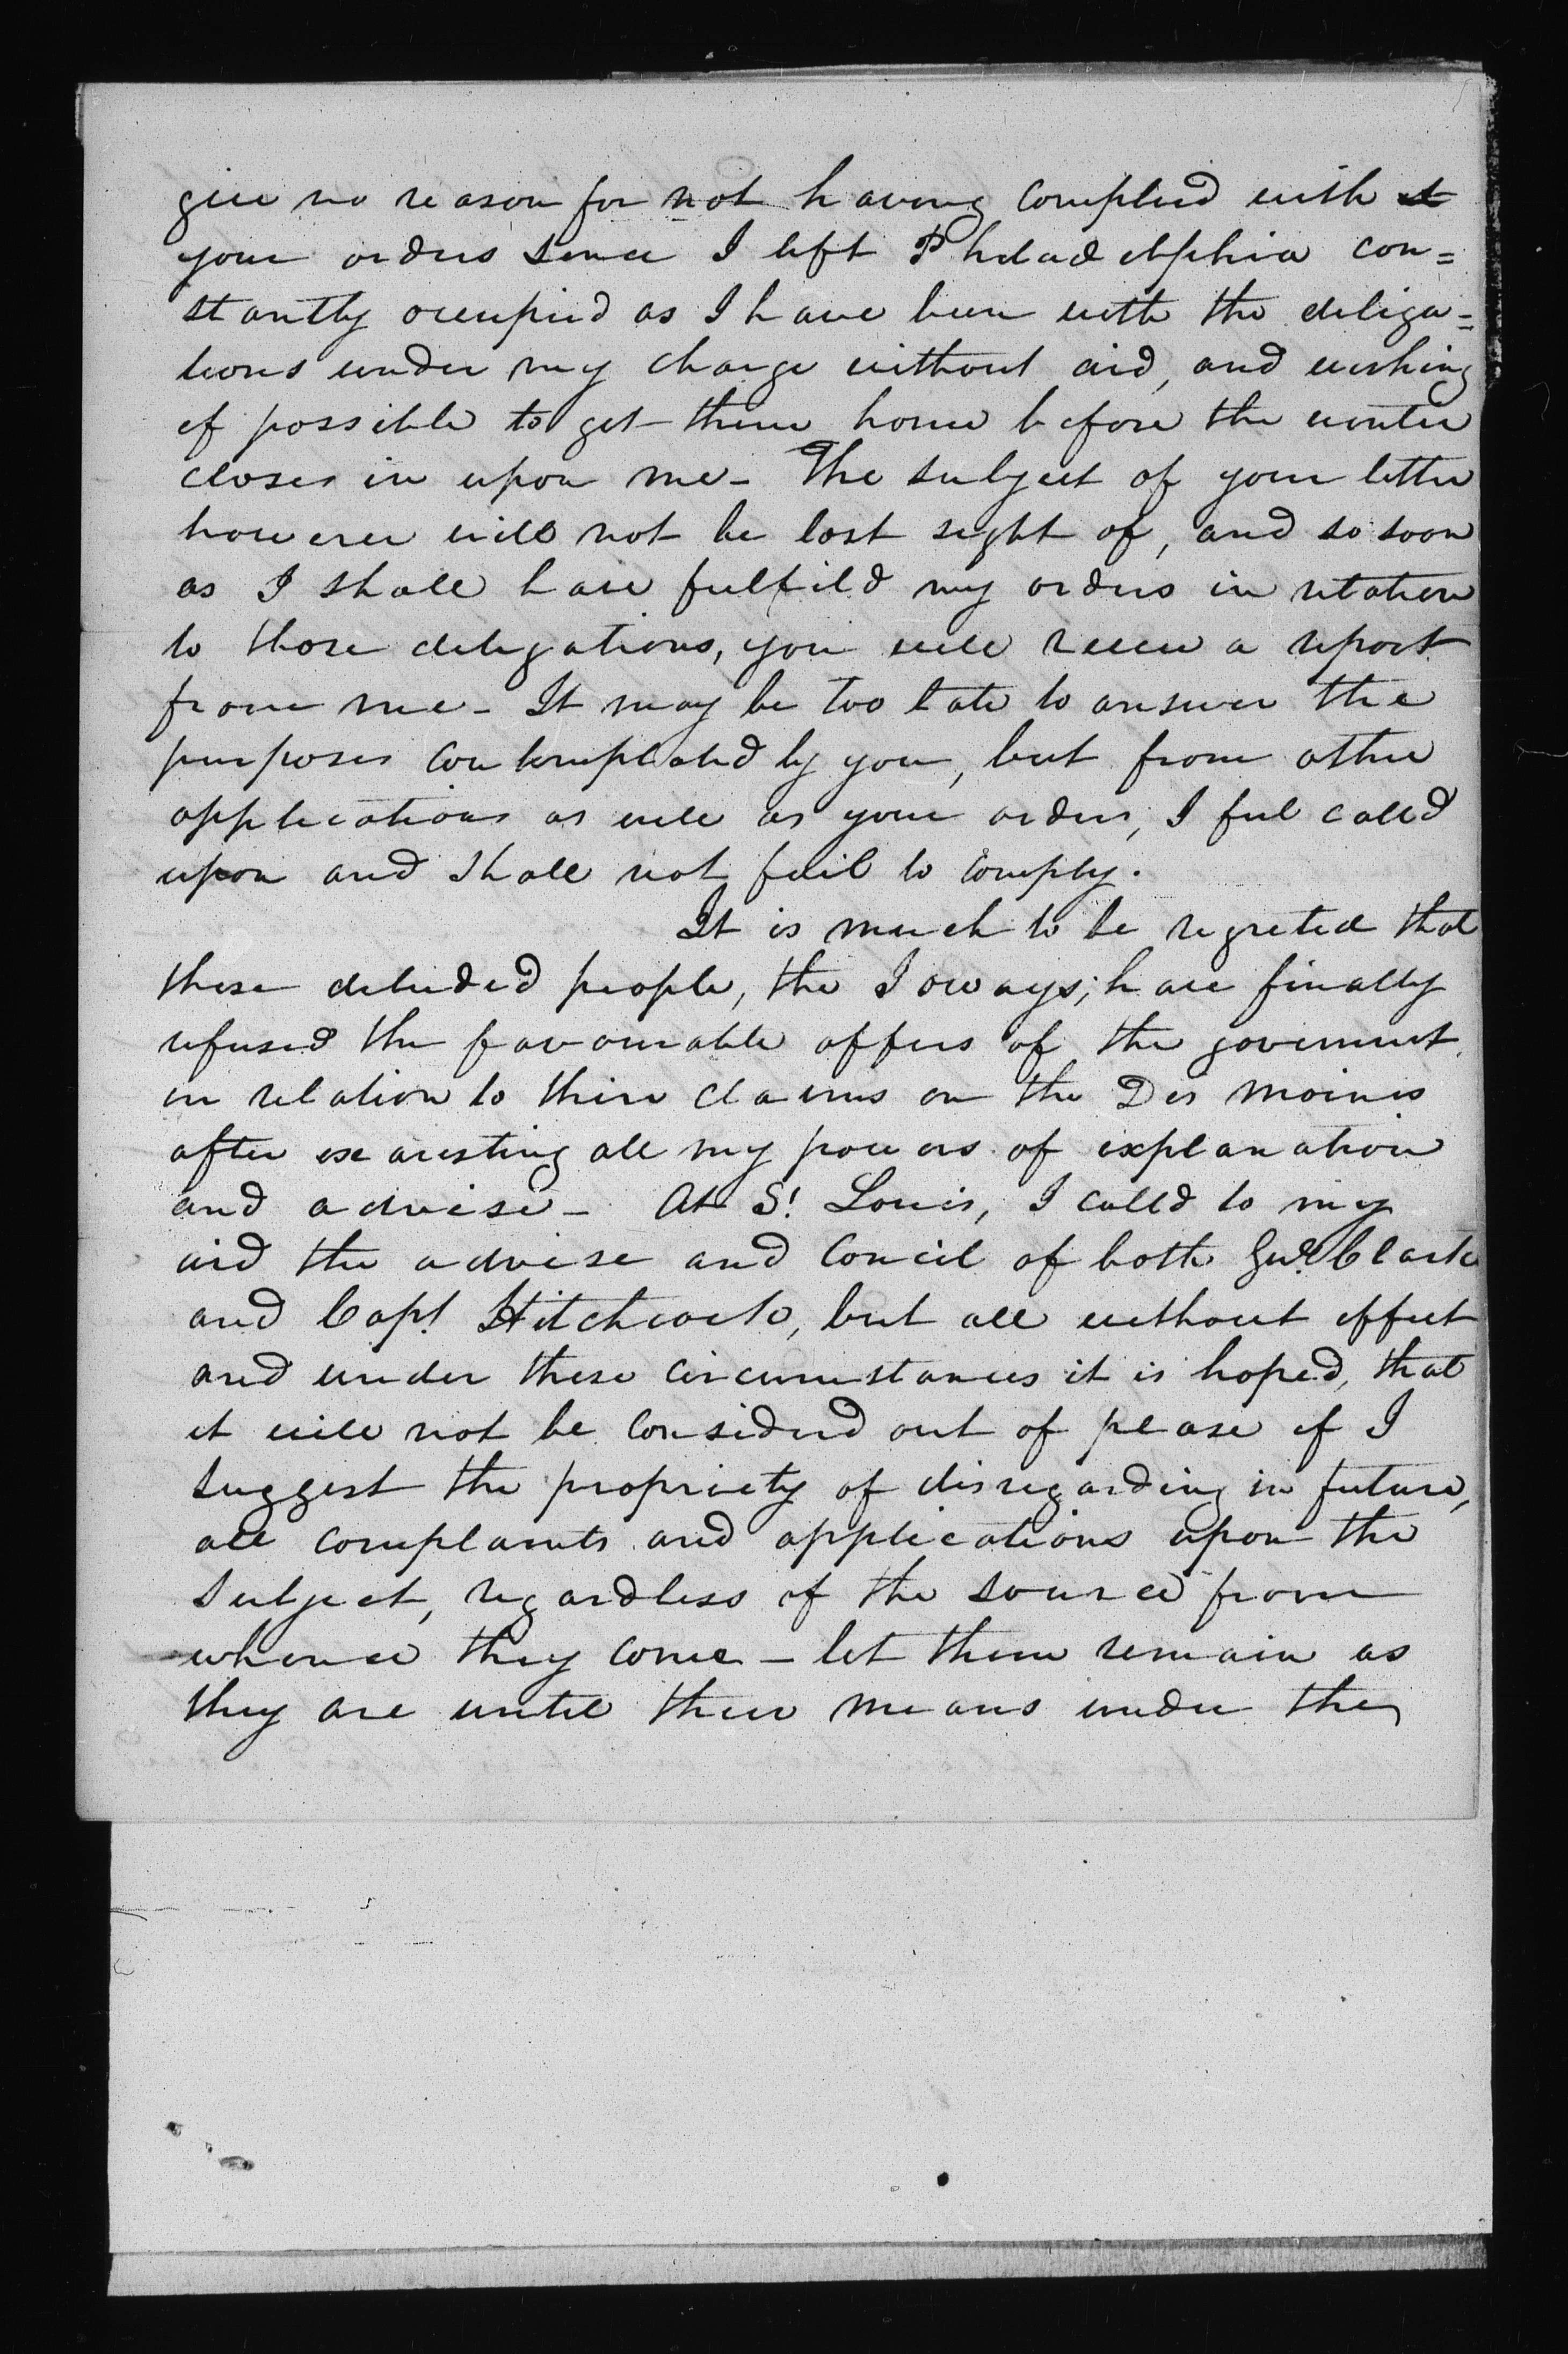 give no reason for not having complied with
your orders since I left Philadelphia con=
stantly occupied as I have been with the deliga=
tions under my charge without aid, and wishing
if possible to get them home before the winter
closes in upon me - The subject of your letter
however will not be lost sight of, and so soon
as I shall have fulfild my orders in relation
to those deligations, you will receive a report
from me - It may be too late to answer the
purposes contemplated by you, but from other
applications as well as your orders, I feel called
upon and shall not fail to comply.
It is much to be regreted that
these deluded people, the Ioways, have finally
refused the favourable offers of the goverment
in relation to their claims on the Des moines
after exausting all my powers of explanation
and advise - At St. Louis, I called to my
aid the advise and Concil of both Genl. Clark
and Capt. Hitchcock, but all without effect
and under these circumstances it is hoped, that
it will not be considered out of please if I
suggest the propriety of disregarding in future,
all complaints and applications upon the
subject, regardless of the source from
whence they come - let them remain as
they are until their means under the